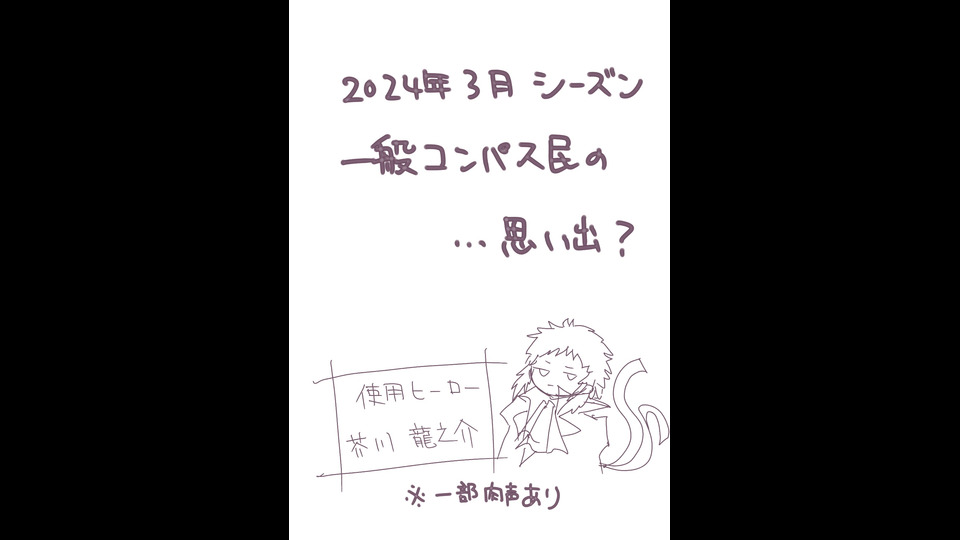 2024年3月 シーズン
一般コンパス民の
…思い出？
使用ヒーロー
芥川 龍之介
※一部肉声あり